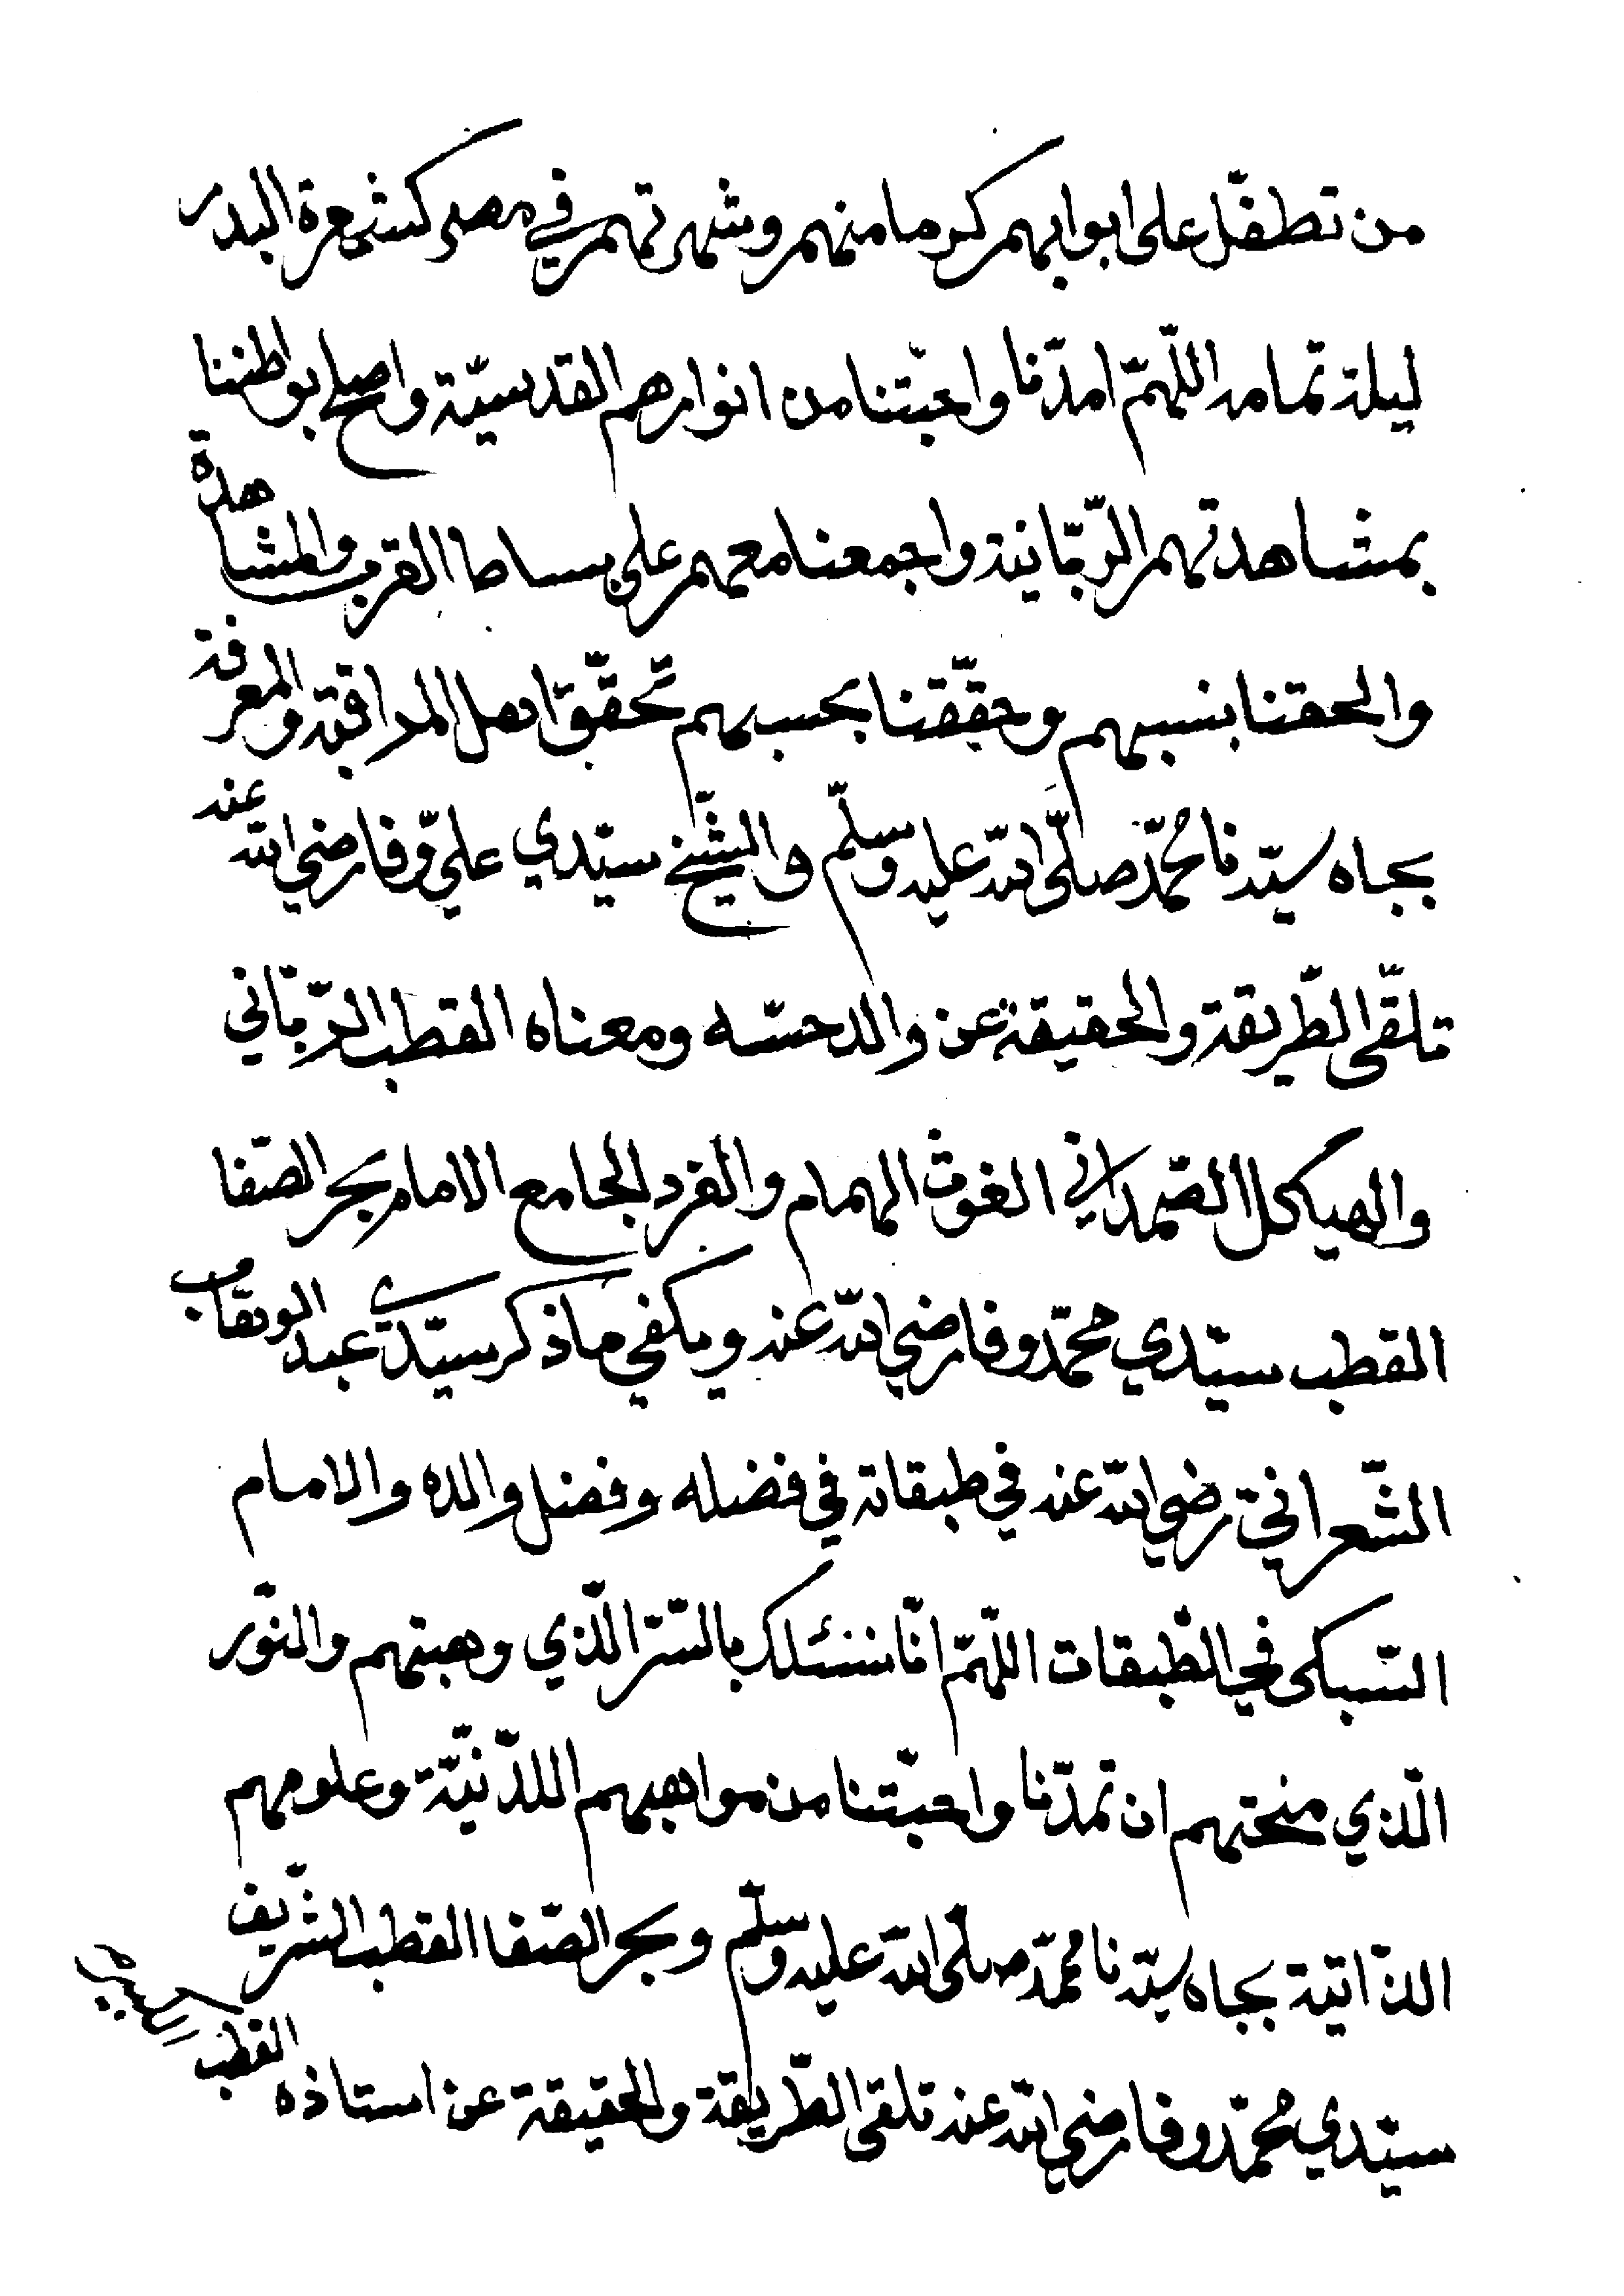 من تطفّل على ابوابهم كرما منهم وشهرتهم في مصر كشعرة البدر
ليلة تمامه اللّهمّ امدّنا واحبّتنا من انوارهم القدسيّة واصلح بواطننا
بمشاهدتهم الرّبّانية واجمعنا معهم على بساط القرب والمشاهدة
والحقنا بنسبهم وحقّقنا بحسبهم تحقّق اهل المراقبة والمعرفة
بجاه سيّدنا محمّد صلّى الله عليه وسلّم والشّيخ سيّدي عليّ وفا رضي الله عنه
تلقّى الطّريقة والحقيقة عن والد حسّه ومعناه القطب الرّبّاني
والهيكل الصّمداني الغوث الهمام والفرد الجامع الامام بحر الصّفا
القطب سيّدي محمّد وفا رضي الله عنه ويكفي ماذكر سيّدي عبد الوهّاب
الشّعراني رضي الله عنه في طبقاته في فضله وفضل والده والامام
السّبكى في الطّبقات اللّهمّ انّا نسئلك بالسّرّ الّذي وهبتهم والنّور
الّذي منحتهم ان تمدّنا واحبّتنا من مواهبهم اللدّنيّة وعلومهم
الذّاتية بجاه سيّدنا محمّد صلّى الله عليه وسلّم وبحر الصّفا القطب الشّريف
سيّدي محمّد وفا رضي الله عنه تلقى الطّريقة والحقيقة عن استاذه القطب